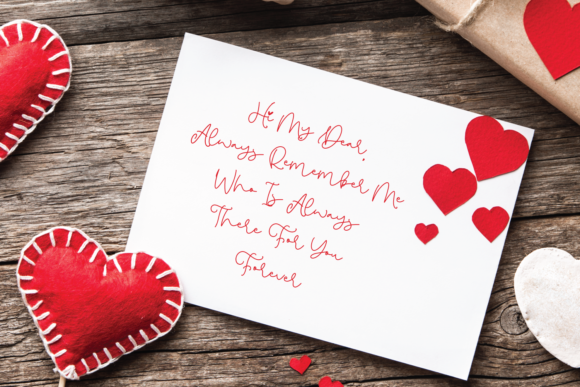 Hi My Dear,
Always Remember Me
Who Is Always
There For You
Forever